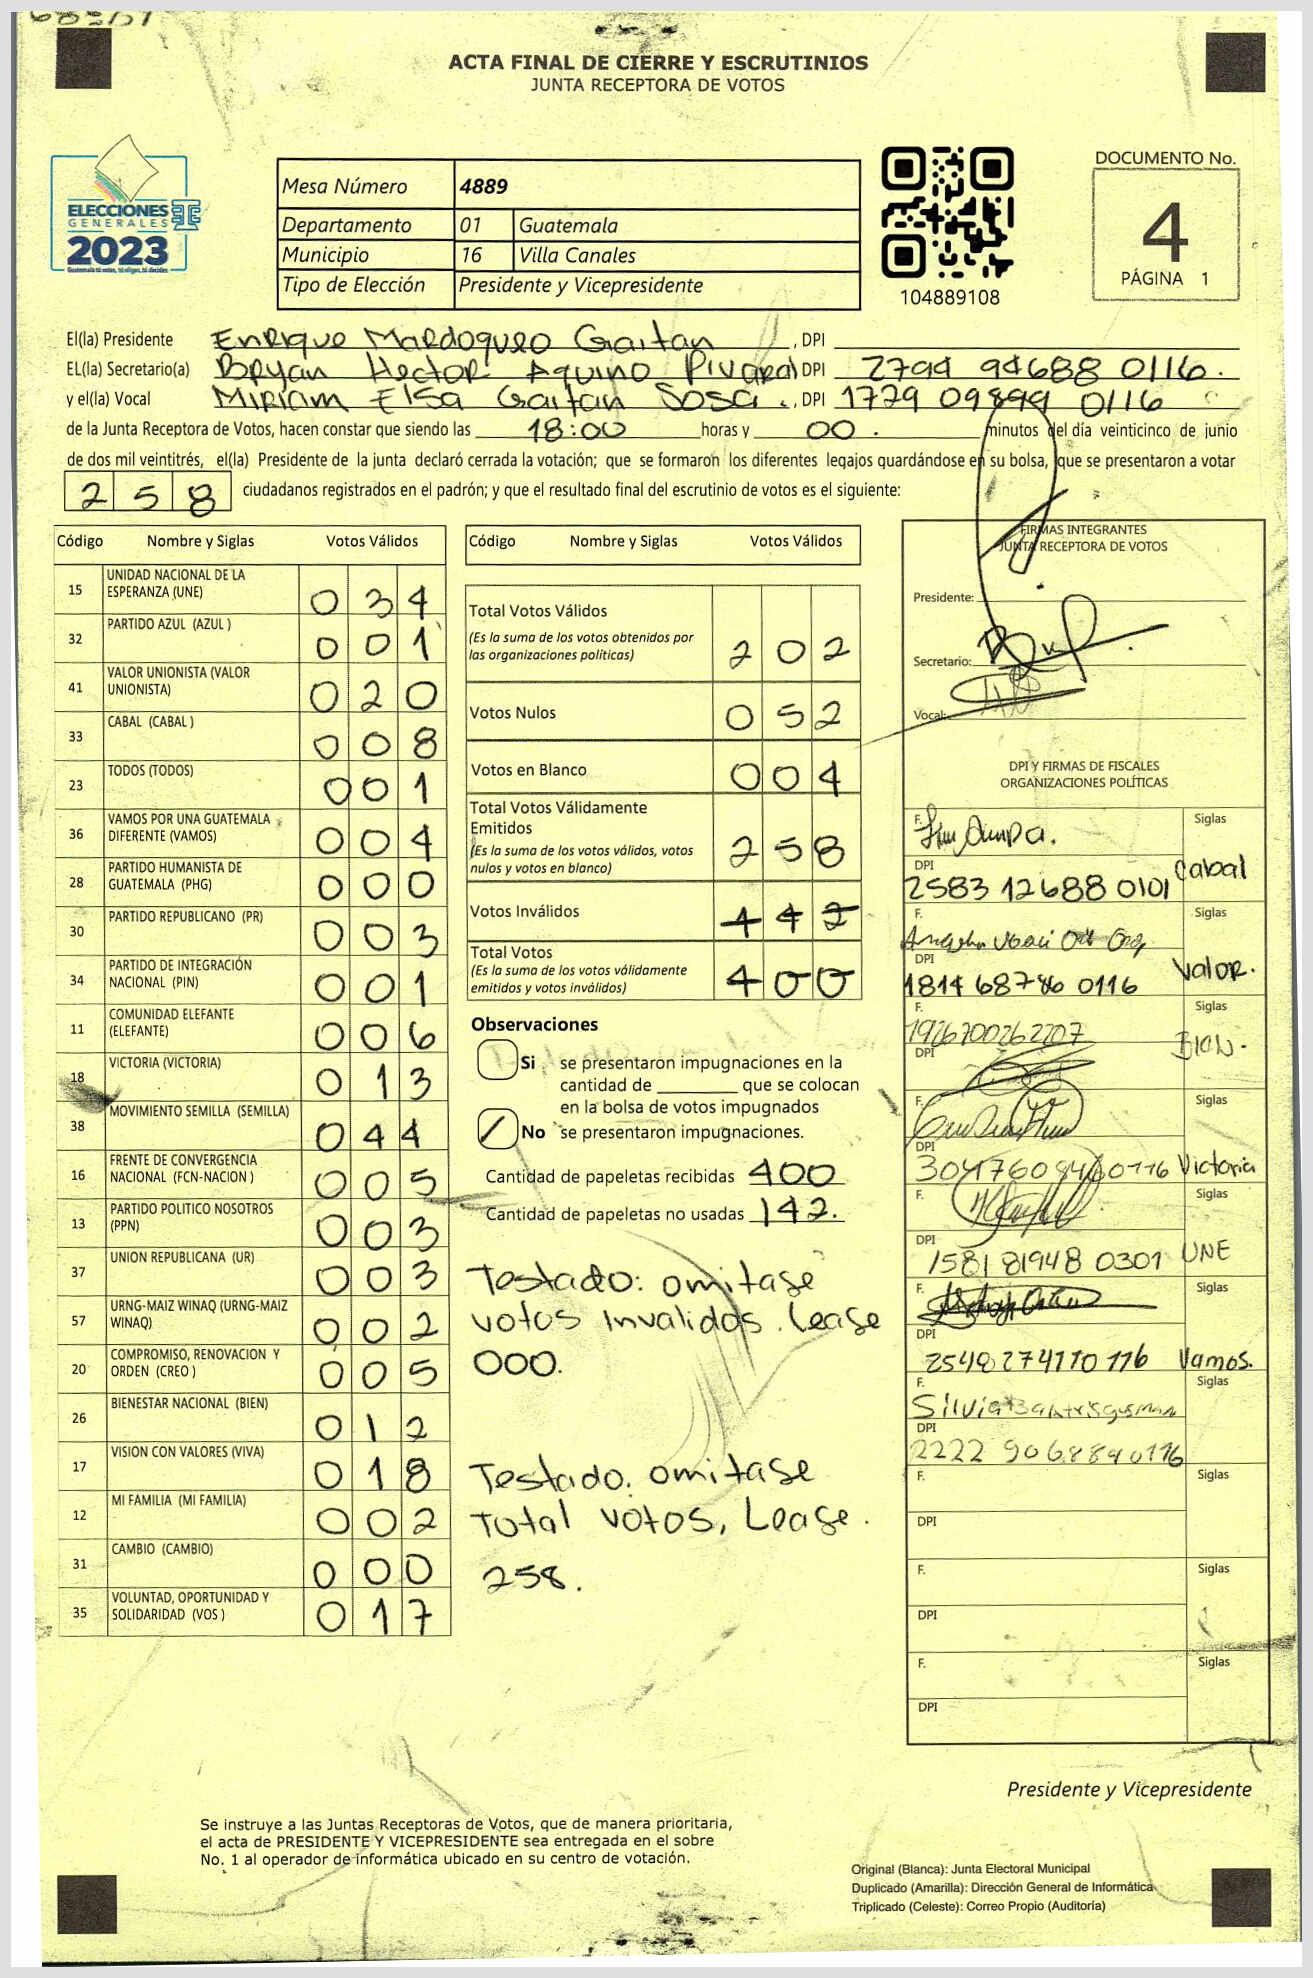 ACTA FINAL DE CIERRE Y ESCRUTINIOS
JUNTA RECEPTORA DE VOTOS
ELECCIONES
GENERALES
2023
Mesa Número 4889
Departamento 01 Guatemala
Municipio 16 Villa Canales
Tipo de Elección Presidente y Vicepresidente
104889108
DOCUMENTO No.
4
PÁGINA 1
El(la) Presidente Enrique Mardoqueo Gaitan , DPI
EL(la) Secretario(a) Bryan Hector Aquino Pivaral DPI 2794 94688 0116.
y el(la) Vocal Miriam Elsa Gaitan Sosa ., DPI 1779 09899 0116
de la Junta Receptora de Votos, hacen constar que siendo las 18:00 horas y 00. minutos del día veinticinco de junio
de dos mil veintitrés, el(la) Presidente de la junta declaró cerrada la votación; que se formaron los diferentes legajos quardándose en su bolsa, que se presentaron a votar
258 ciudadanos registrados en el padrón; y que el resultado final del escrutinio de votos es el siguiente:
Código Nombre y Siglas Votos Válidos
15 UNIDAD NACIONAL DE LA
ESPERANZA (UNE) 034
32 PARTIDO AZUL (AZUL ) 001
41 VALOR UNIONISTA (VALOR
UNIONISTA) 020
33 CABAL (CABAL ) 008
23 TODOS (TODOS) 001
36 VAMOS POR UNA GUATEMALA
DIFERENTE (VAMOS) 004
28 PARTIDO HUMANISTA DE
GUATEMALA (PHG) 000
30 PARTIDO REPUBLICANO (PR) 003
34 PARTIDO DE INTEGRACIÓN
NACIONAL (PIN) 001
11 COMUNIDAD ELEFANTE
(ELEFANTE) 006
18 VICTORIA (VICTORIA) 013
38 MOVIMIENTO SEMILLA (SEMILLA) 044
16 FRENTE DE CONVERGENCIA
NACIONAL (FCN-NACION ) 005
13 PARTIDO POLITICO NOSOTROS
(PPN) 003
37 UNION REPUBLICANA (UR) 003
57 URNG-MAIZ WINAQ (URNG-MAIZ
WINAQ) 002
20 COMPROMISO, RENOVACION Y
ORDEN (CREO ) 005
26 BIENESTAR NACIONAL (BIEN) 012
17 VISION CON VALORES (VIVA) 018
12 MI FAMILIA (MI FAMILIA) 002
31 CAMBIO (CAMBIO) 000
35 VOLUNTAD, OPORTUNIDAD Y
SOLIDARIDAD (VOS ) 017
Código Nombre y Siglas Votos Válidos
Total Votos Válidos
(Es la suma de los votos obtenidos por
las organizaciones políticas) 202
Votos Nulos 052
Votos en Blanco 004
Total Votos Válidamente
Emitidos
(Es la suma de los votos válidos, votos
nulos y votos en blanco) 258
Votos Inválidos 442
Total Votos
(Es la suma de los votos válidamente
emitidos y votos inválidos) 400
Observaciones
Si se presentaron impugnaciones en la
cantidad de ________ que se colocan
en la bolsa de votos impugnados
No se presentaron impugnaciones.
Cantidad de papeletas recibidas 400
Cantidad de papeletas no usadas 142.
Testado: omitase
votos invalidos. Lease
000.
Testado. omitase
Total votos, Lease.
258.
FIRMAS INTEGRANTES
JUNTA RECEPTORA DE VOTOS
Presidente:
Secretario:
Vocal:
DPI Y FIRMAS DE FISCALES
ORGANIZACIONES POLÍTICAS
F. Siglas
DPI Cabal
2583 12688 0101
F. Siglas
DPI Valor.
1814 68786 0116
F. Siglas
1926700262207 BIEN.
DPI
F. Siglas
DPI
Victoria
F. Siglas
DPI
1581 81948 0301 UNE
F. Siglas
DPI
2548 27411 0116 Vamos.
F. Siglas
Silvia
DPI
2222 90688 90116
F. Siglas
DPI
F. Siglas
DPI
F. Siglas
DPI
Presidente y Vicepresidente
Se instruye a las Juntas Receptoras de Votos, que de manera prioritaria,
el acta de PRESIDENTE Y VICEPRESIDENTE sea entregada en el sobre
No. 1 al operador de informática ubicado en su centro de votación.
Original (Blanca): Junta Electoral Municipal
Duplicado (Amarilla): Dirección General de Informática
Triplicado (Celeste): Correo Propio (Auditoría)